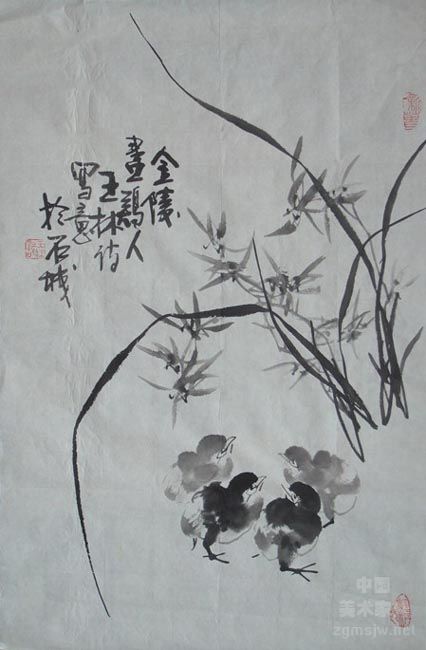 金陵
畫鷄人
王林
寫意
於石城
中国
美术家
zgmsjw.net